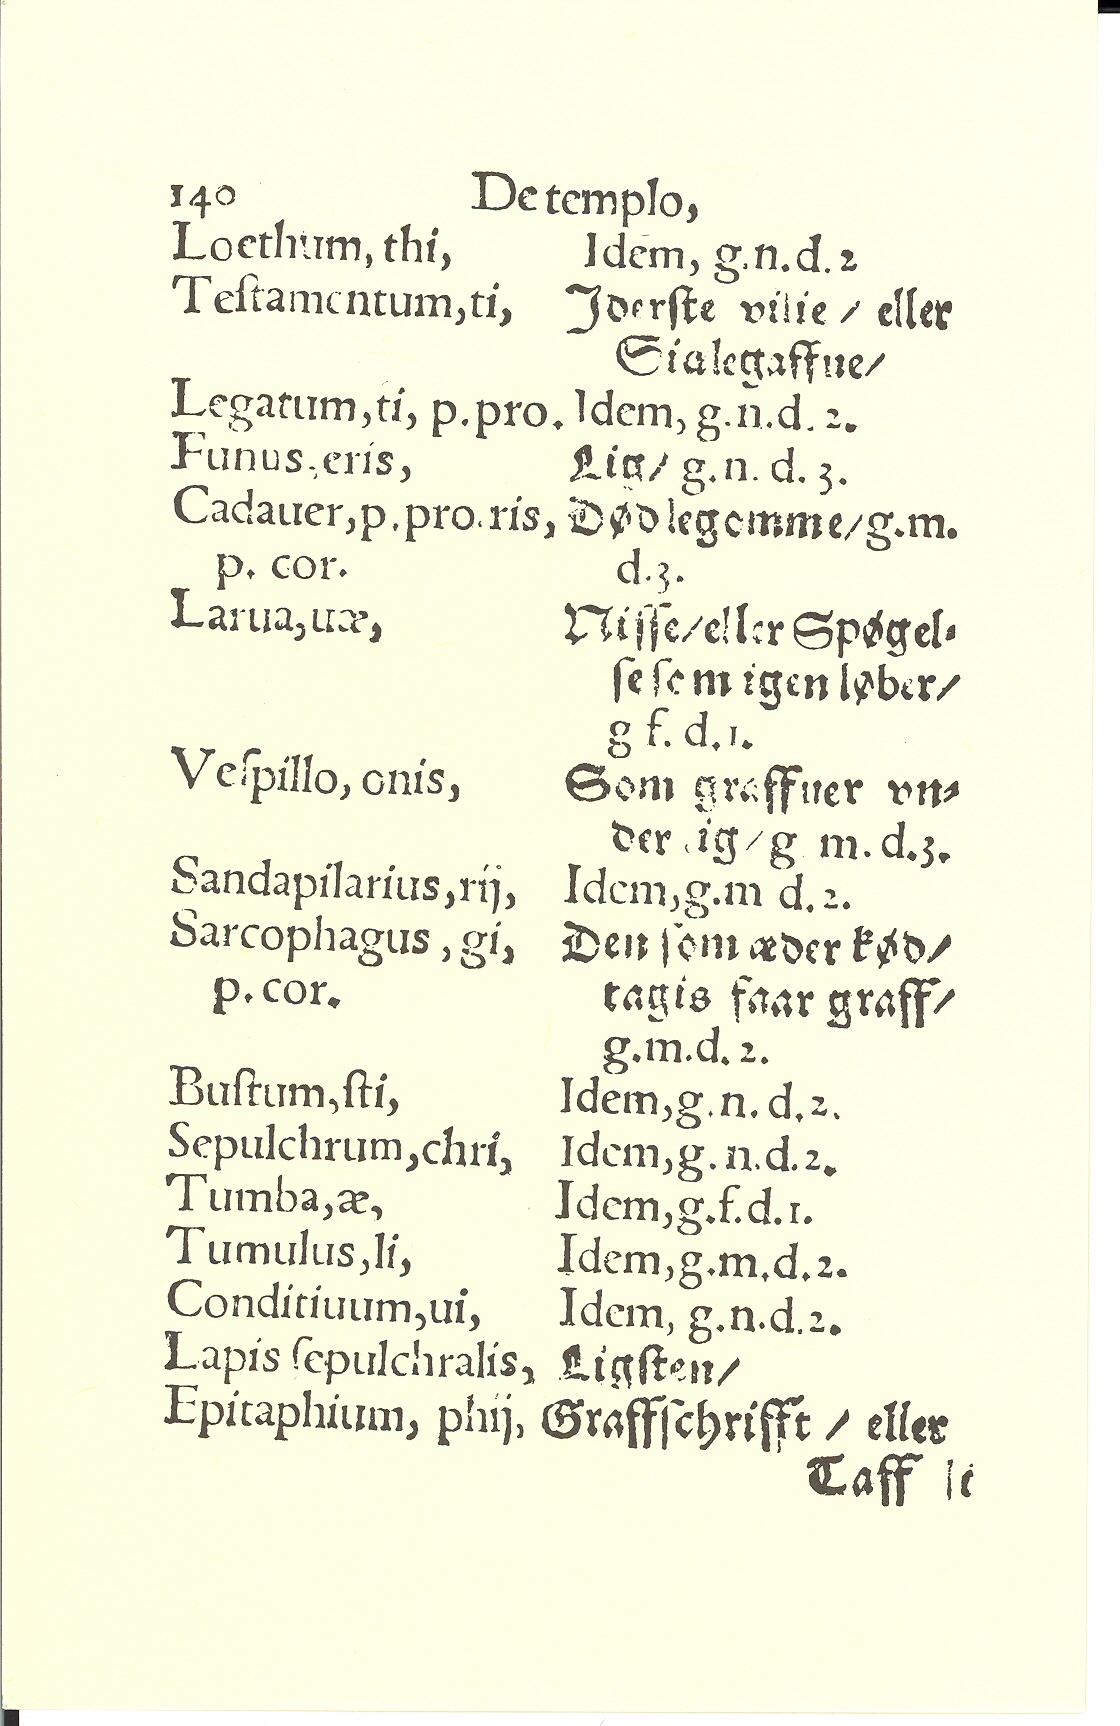 140 De templo,
Loethum, thi, Idem, g.n.d.2
Teſtamentum,ti, Iderſte vilie / eller
Sialegaffue/
Legatum,ti, p.pro. Idem, g.n.d.2.
Funus,eris, Lig/ g.n.d.3.
Cadauer,p.pro.ris, Dødlegomme/g.m.
p. cor. d.3.
Larua,uæ, Niſſe/eller Spøgel⸗
ſe ſom igen løber/
g f. d.1.
Veſpillo, onis, Som graffuer vn⸗
der ig/g m.d.3.
Sandapilarius,rij, Idem,g.m d.2.
Sarcophagus,gi, Den ſom æder kød/
p.cor. tagis faar graff/
g.m.d.2.
Buſtum,ſti, Idem,g.n.d.2.
Sepulchrum,chri, Idem,g.n.d.2.
Tumba,æ, Idem,g.f.d.1.
Tumulus,li, Idem,g.m.d.2.
Conditiuum,ui, Idem, g.n.d.2.
Lapis ſepulchralis, Ligſten/
Epitaphium, phij, Graffſchrifft / eller
Taff le